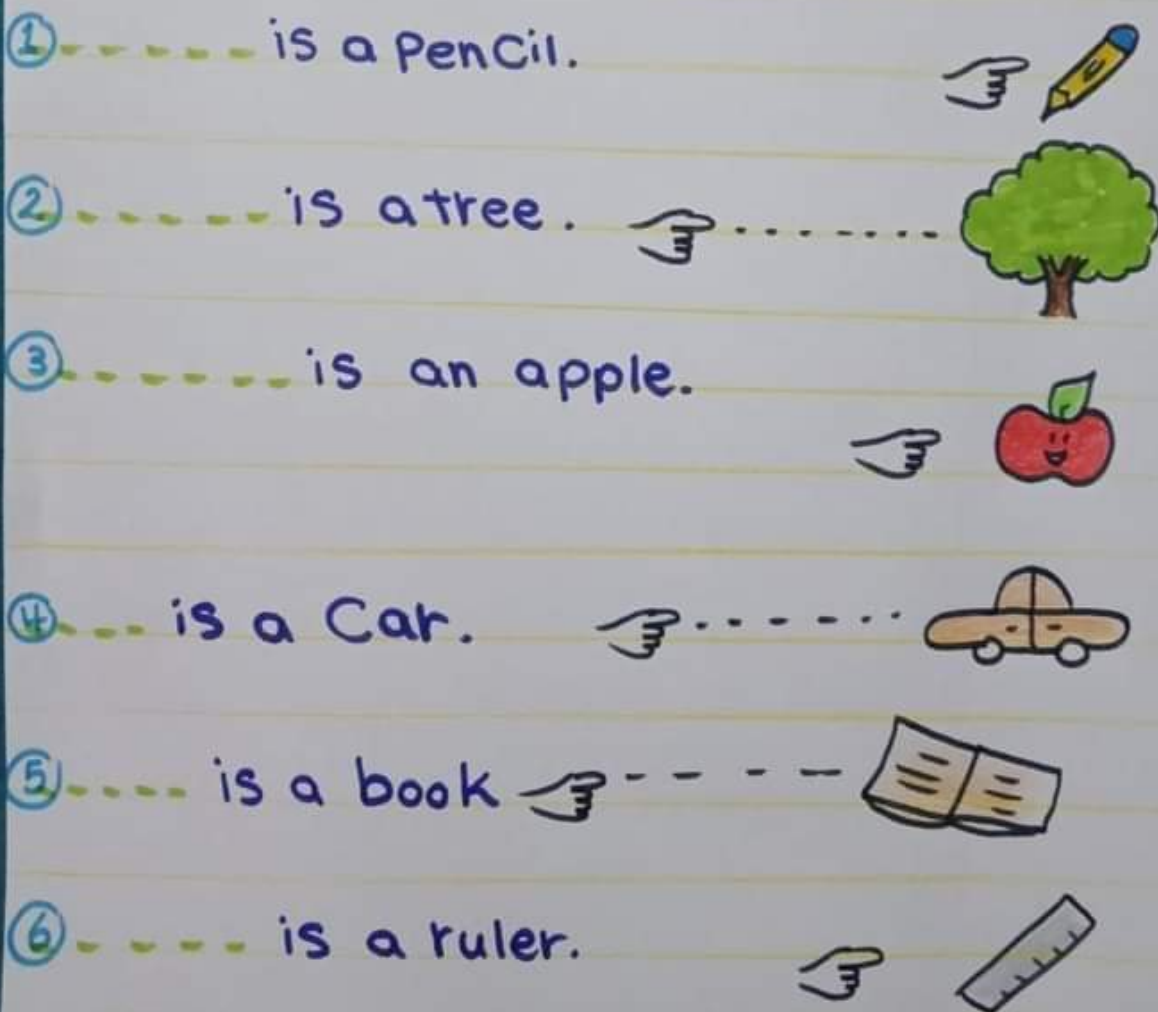 ① ----- is a pencil.
② ----- is a tree.
③ ------ is an apple.
④ --- is a Car.
⑤ ---- is a book
⑥ ---- is a ruler.